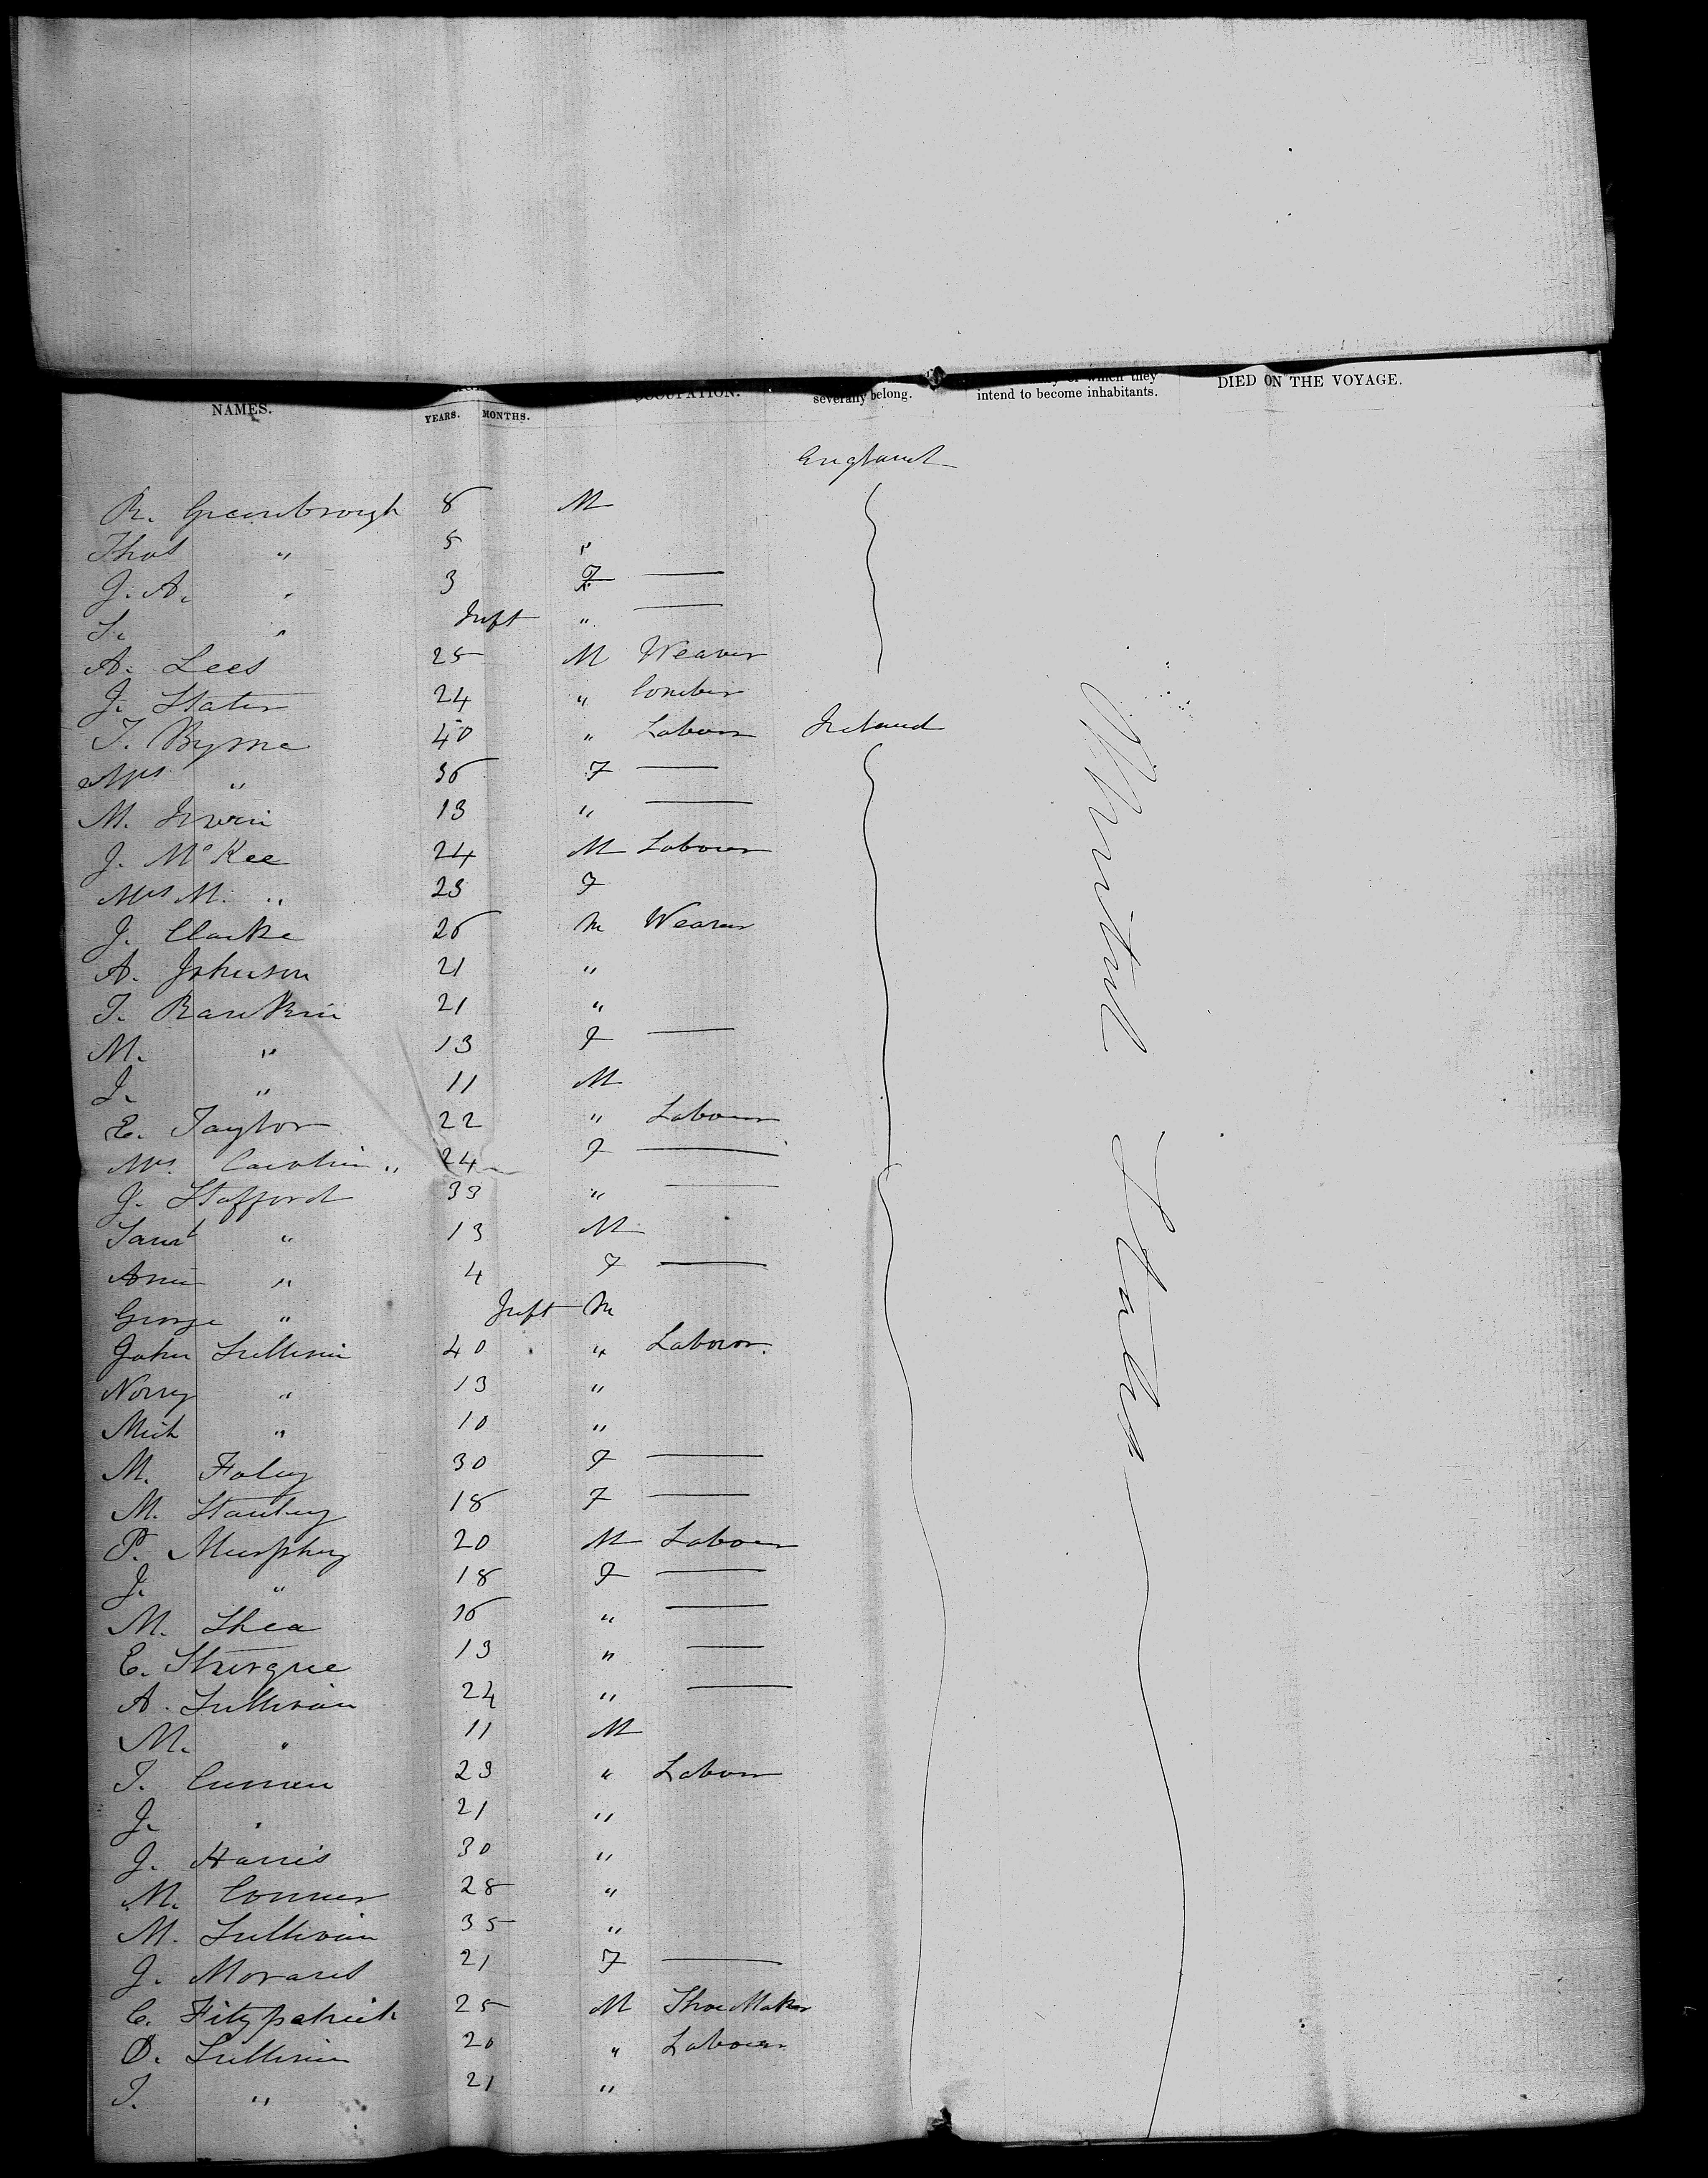 NAMES. YEARS. MONTHS. OCCUPATION. severally belong. of which they intend to become inhabitants. DIED ON THE VOYAGE.
England
R. Greenbrough 8 M
Thos " 5 "
J. A. " 3 F —
S. " Inft " —
A. Lees 25 M Weaver
J. Slater 24 " Comber
T. Byrne 40 " Labour Ireland
Mrs " 36 F —
M. Irwin 13 " —
J. McKee 24 M Labour
Mrs M. " 23 F
J. Clarke 26 M Weaver
A. Johnson 21 "
T. Rankin 21 "
M. " 13 F —
J. " 11 M
E. Taylor 22 " Labour
Mrs. Carolin " 24 F —
J. Stafford 33 " —
Saml " 13 M
Ann " 4 F —
George " Inft M
John Sullivin 40 " Labour.
Norry " 13 "
Mich " 10 "
M. Foley 30 F —
M. Stanley 18 F —
P. Murphy 20 M Labour
J. " 18 F —
M. Shea 16 " —
E. 13 " —
A. Sullivan 24 " —
M. " 11 M
T. 23 " Labour
J. " 21 "
J. Harris 30 "
M. Conner 28 "
M. Sullivan 35 "
J. 21 F —
C. Fitzpatrick 25 M Shoe Maker
D. Sullivin 20 " Labour
T. " 21 "
United States